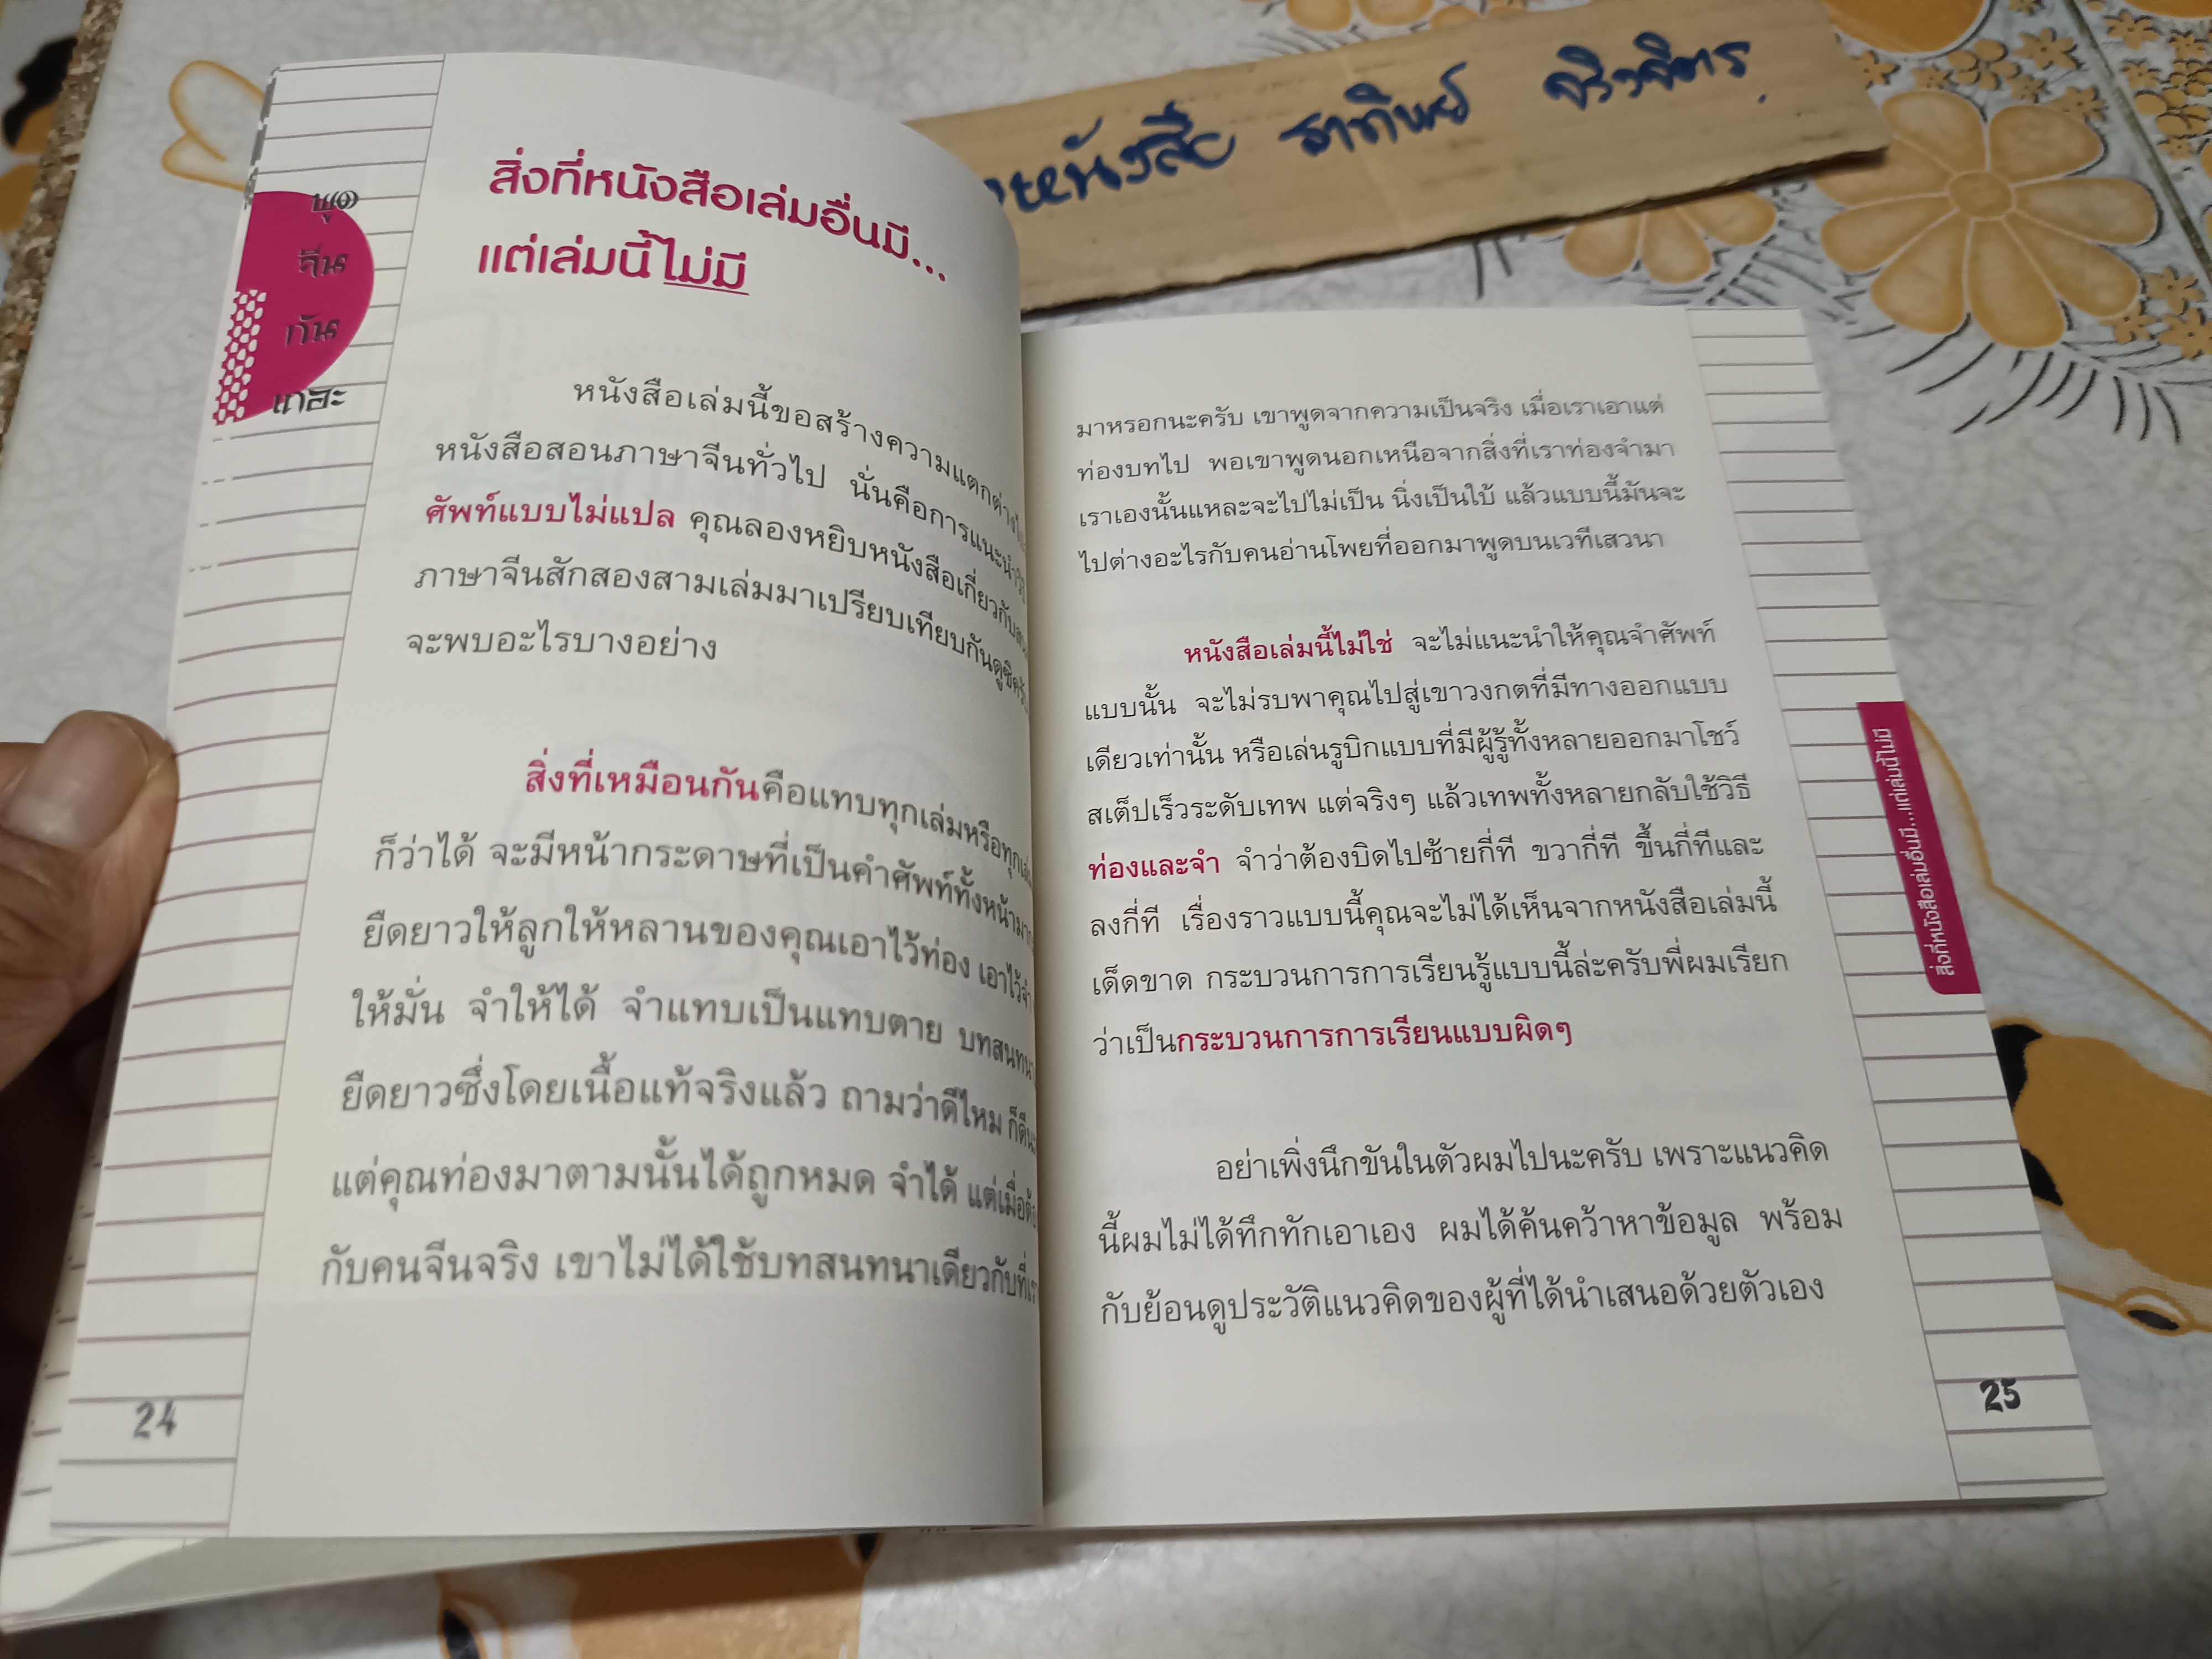 หนังสือ ธาทิพย์ จิรวจิตร
พูด
จีน
กัน
เถอะ
สิ่งที่หนังสือเล่มอื่นมี...
แต่เล่มนี้ไม่มี
หนังสือเล่มนี้ขอสร้างความแตกต่าง
หนังสือสอนภาษาจีนทั่วไป นั่นคือการแนะนำ
ศัพท์แบบไม่แปล คุณลองหยิบหนังสือเกี่ยวกับ
ภาษาจีนสักสองสามเล่มมาเปรียบเทียบกันดูซิครับ
จะพบอะไรบางอย่าง
สิ่งที่เหมือนกันคือแทบทุกเล่มหรือทุกเล่ม
ก็ว่าได้ จะมีหน้ากระดาษที่เป็นคำศัพท์ทั้งหน้า
ยืดยาวให้ลูกให้หลานของคุณเอาไว้ท่อง เอาไว้จำ
ให้มั่น จำให้ได้ จำแทบเป็นแทบตาย บทสนทนา
ยืดยาวซึ่งโดยเนื้อแท้จริงแล้ว ถามว่าดีไหม ก็ดีนะ
แต่คุณท่องมาตามนั้นได้ถูกหมด จำได้ แต่เมื่อ
กับคนจีนจริง เขาไม่ได้ใช้บทสนทนาเดียวกับที่เรา
24
มาหรอกนะครับ เขาพูดจากความเป็นจริง เมื่อเราเอาแต่
ท่องบทไป พอเขาพูดนอกเหนือจากสิ่งที่เราท่องจำมา
เราเองนั้นแหละจะไปไม่เป็น นิ่งเป็นใบ้ แล้วแบบนี้มันจะ
ไปต่างอะไรกับคนอ่านโพยที่ออกมาพูดบนเวทีเสวนา
หนังสือเล่มนี้ไม่ใช่ จะไม่แนะนำให้คุณจำศัพท์
แบบนั้น จะไม่รบพาคุณไปสู่เขาวงกตที่มีทางออกแบบ
เดียวเท่านั้น หรือเล่นรูบิกแบบที่มีผู้รู้ทั้งหลายออกมาโชว์
สเต็ปเร็วระดับเทพ แต่จริงๆ แล้วเทพทั้งหลายกลับใช้วิธี
ท่องและจำ จำว่าต้องบิดไปซ้ายกี่ที ขวากี่ที ขึ้นกี่ทีและ
ลงกี่ที เรื่องราวแบบนี้คุณจะไม่ได้เห็นจากหนังสือเล่มนี้
เด็ดขาด กระบวนการการเรียนรู้แบบนี้ล่ะครับพี่ผมเรียก
ว่าเป็นกระบวนการการเรียนแบบผิดๆ
อย่าเพิ่งนึกขันในตัวผมไปนะครับ เพราะแนวคิด
นี้ผมไม่ได้ทึกทักเอาเอง ผมได้ค้นคว้าหาข้อมูล พร้อม
กับย้อนดูประวัติแนวคิดของผู้ที่ได้นำเสนอด้วยตัวเอง
สิ่งที่หนังสือเล่มอื่นมี...แต่เล่มนี้ไม่มี
25